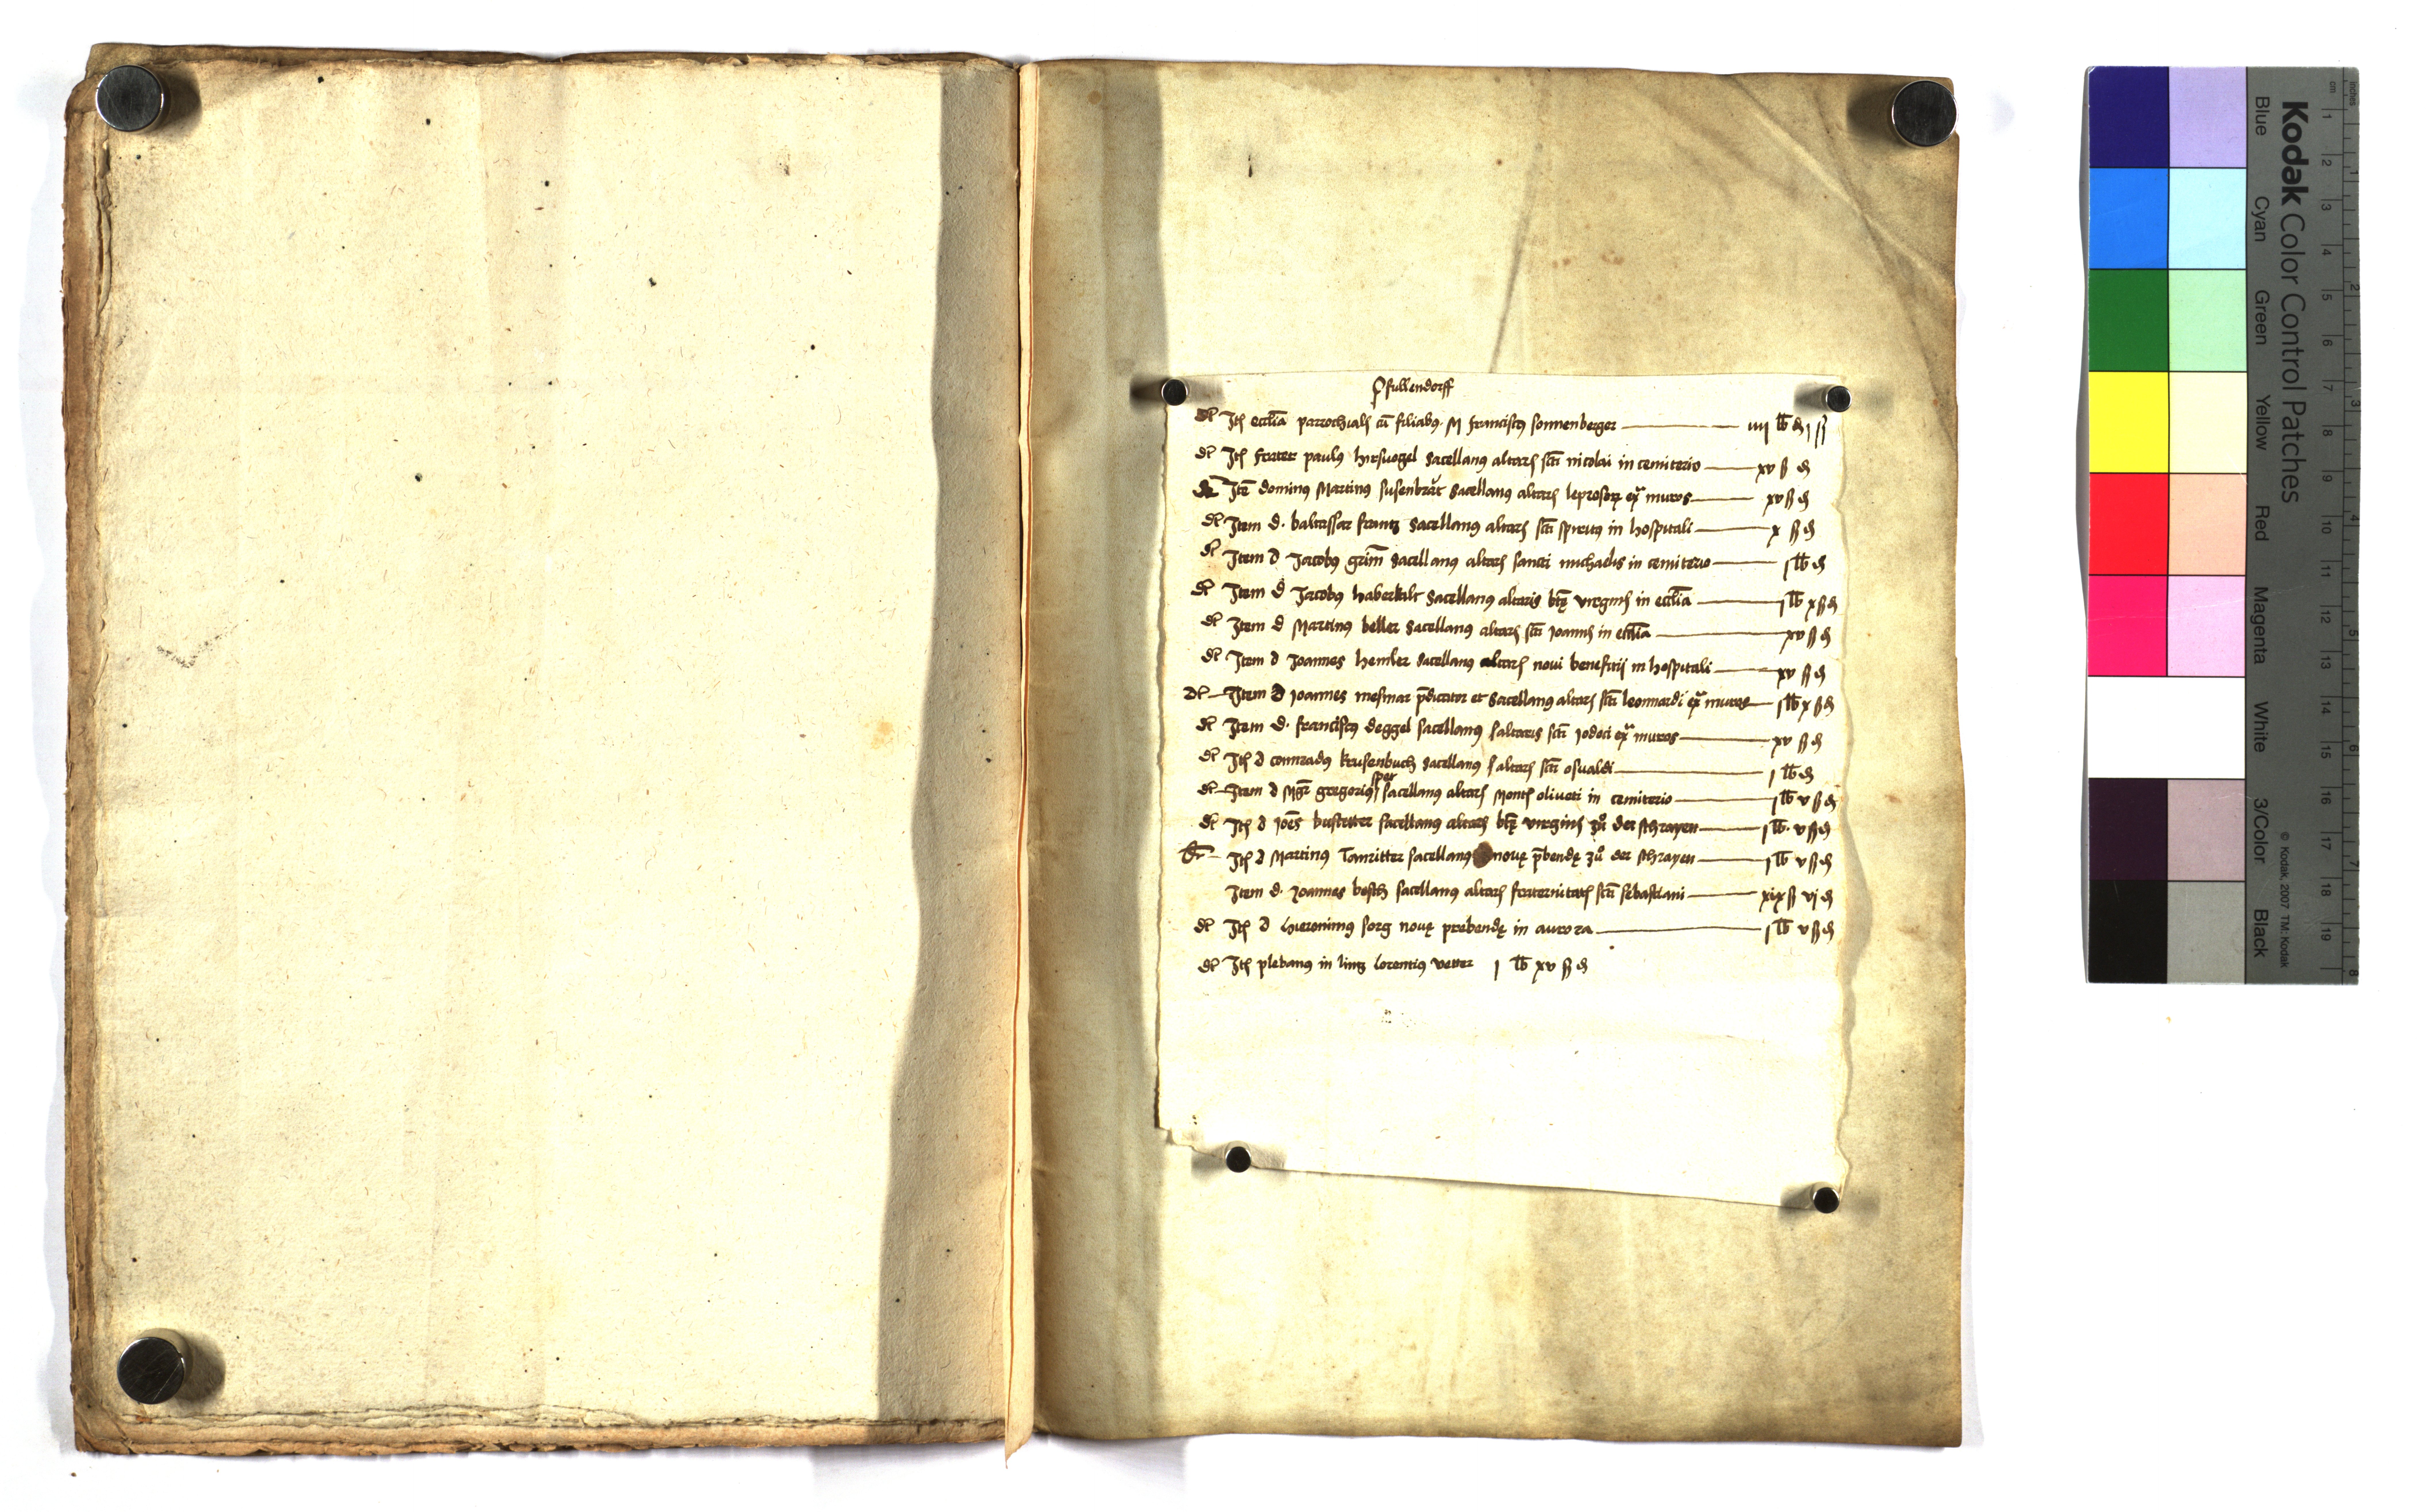 Pfullendorff
dt Itē ecclīa parrochialis cū filiabꝯ M franciscꝯ sonnenberger iiij lb ₰ j ß
dt Itē frater paulꝯ hirsuogel Sacellanꝯ altaris scti nicolai in cemiterio xv ß ₰
Itē dominꝯ Martinꝯ susenbrāt Sacellanꝯ altaris leprosorꝝ ext̄ muros xv ß ₰
dt Item d. baltassar frantz Sacellanꝯ altaris scti spiritꝯ in hospitali x ß ₰
dt Item d Jacobus grim̄ Sacellanꝯ altaris sancti michaelis in cemiterio j lb ₰
dt Item d Jacobus haberkalt Sacellanꝯ altaris btę virginis in ecclīa j lb x ß ₰
dt Item d Martinus beller Sacellanꝯ altaris scti Joannis in ecclīa xv ß ₰
dt Item d Joannes hemler Sacellanꝯ altaris noui beneficij in hospitali xv ß ₰
dt Item d Joannes mesmar p̄dicator et Sacellanꝯ altaris scti leonnardi ext̄ muros j lb x ß ₰
dt Item d. franciscꝯ deggel sacellanus altaris scti Jodoci ext̄ muros xv ß ₰
dt Itē d connradꝯ krusenbuch Sacellanꝯ altaris scti osualdi j lb ₰
dt Item d Mgr̄ gregorius sper sacellanus altaris Montis oliueti in cemiterio j lb v ß ₰
dt Itē d Joēs sacellanus altaris btę virginis zů der schrayen j lb. v ß ₰
Itē d Martinus Tanritter sacellanꝯ nouę p̄bendę zů der schrayen j lb v ß ₰
Item d. Joannes besch sacellanꝯ altaris fraternitatis scti sebastiani xix ß vj ₰
dt Itē d hieronimꝯ sorg nouę prebendę in aurora j lb v ß ₰
dt Itē plebanus in lintz lorentiꝯ vetter j lb xv ß ₰
Kodak Color Control Patches
Blue Cyan Green Yellow Red Magenta White 3/Color Black
© Kodak, 2007 TM: Kodak
cm 1 2 3 4 5 6 7 8 9 10 11 12 13 14 15 16 17 18 19
inches 1 2 3 4 5 6 7 8